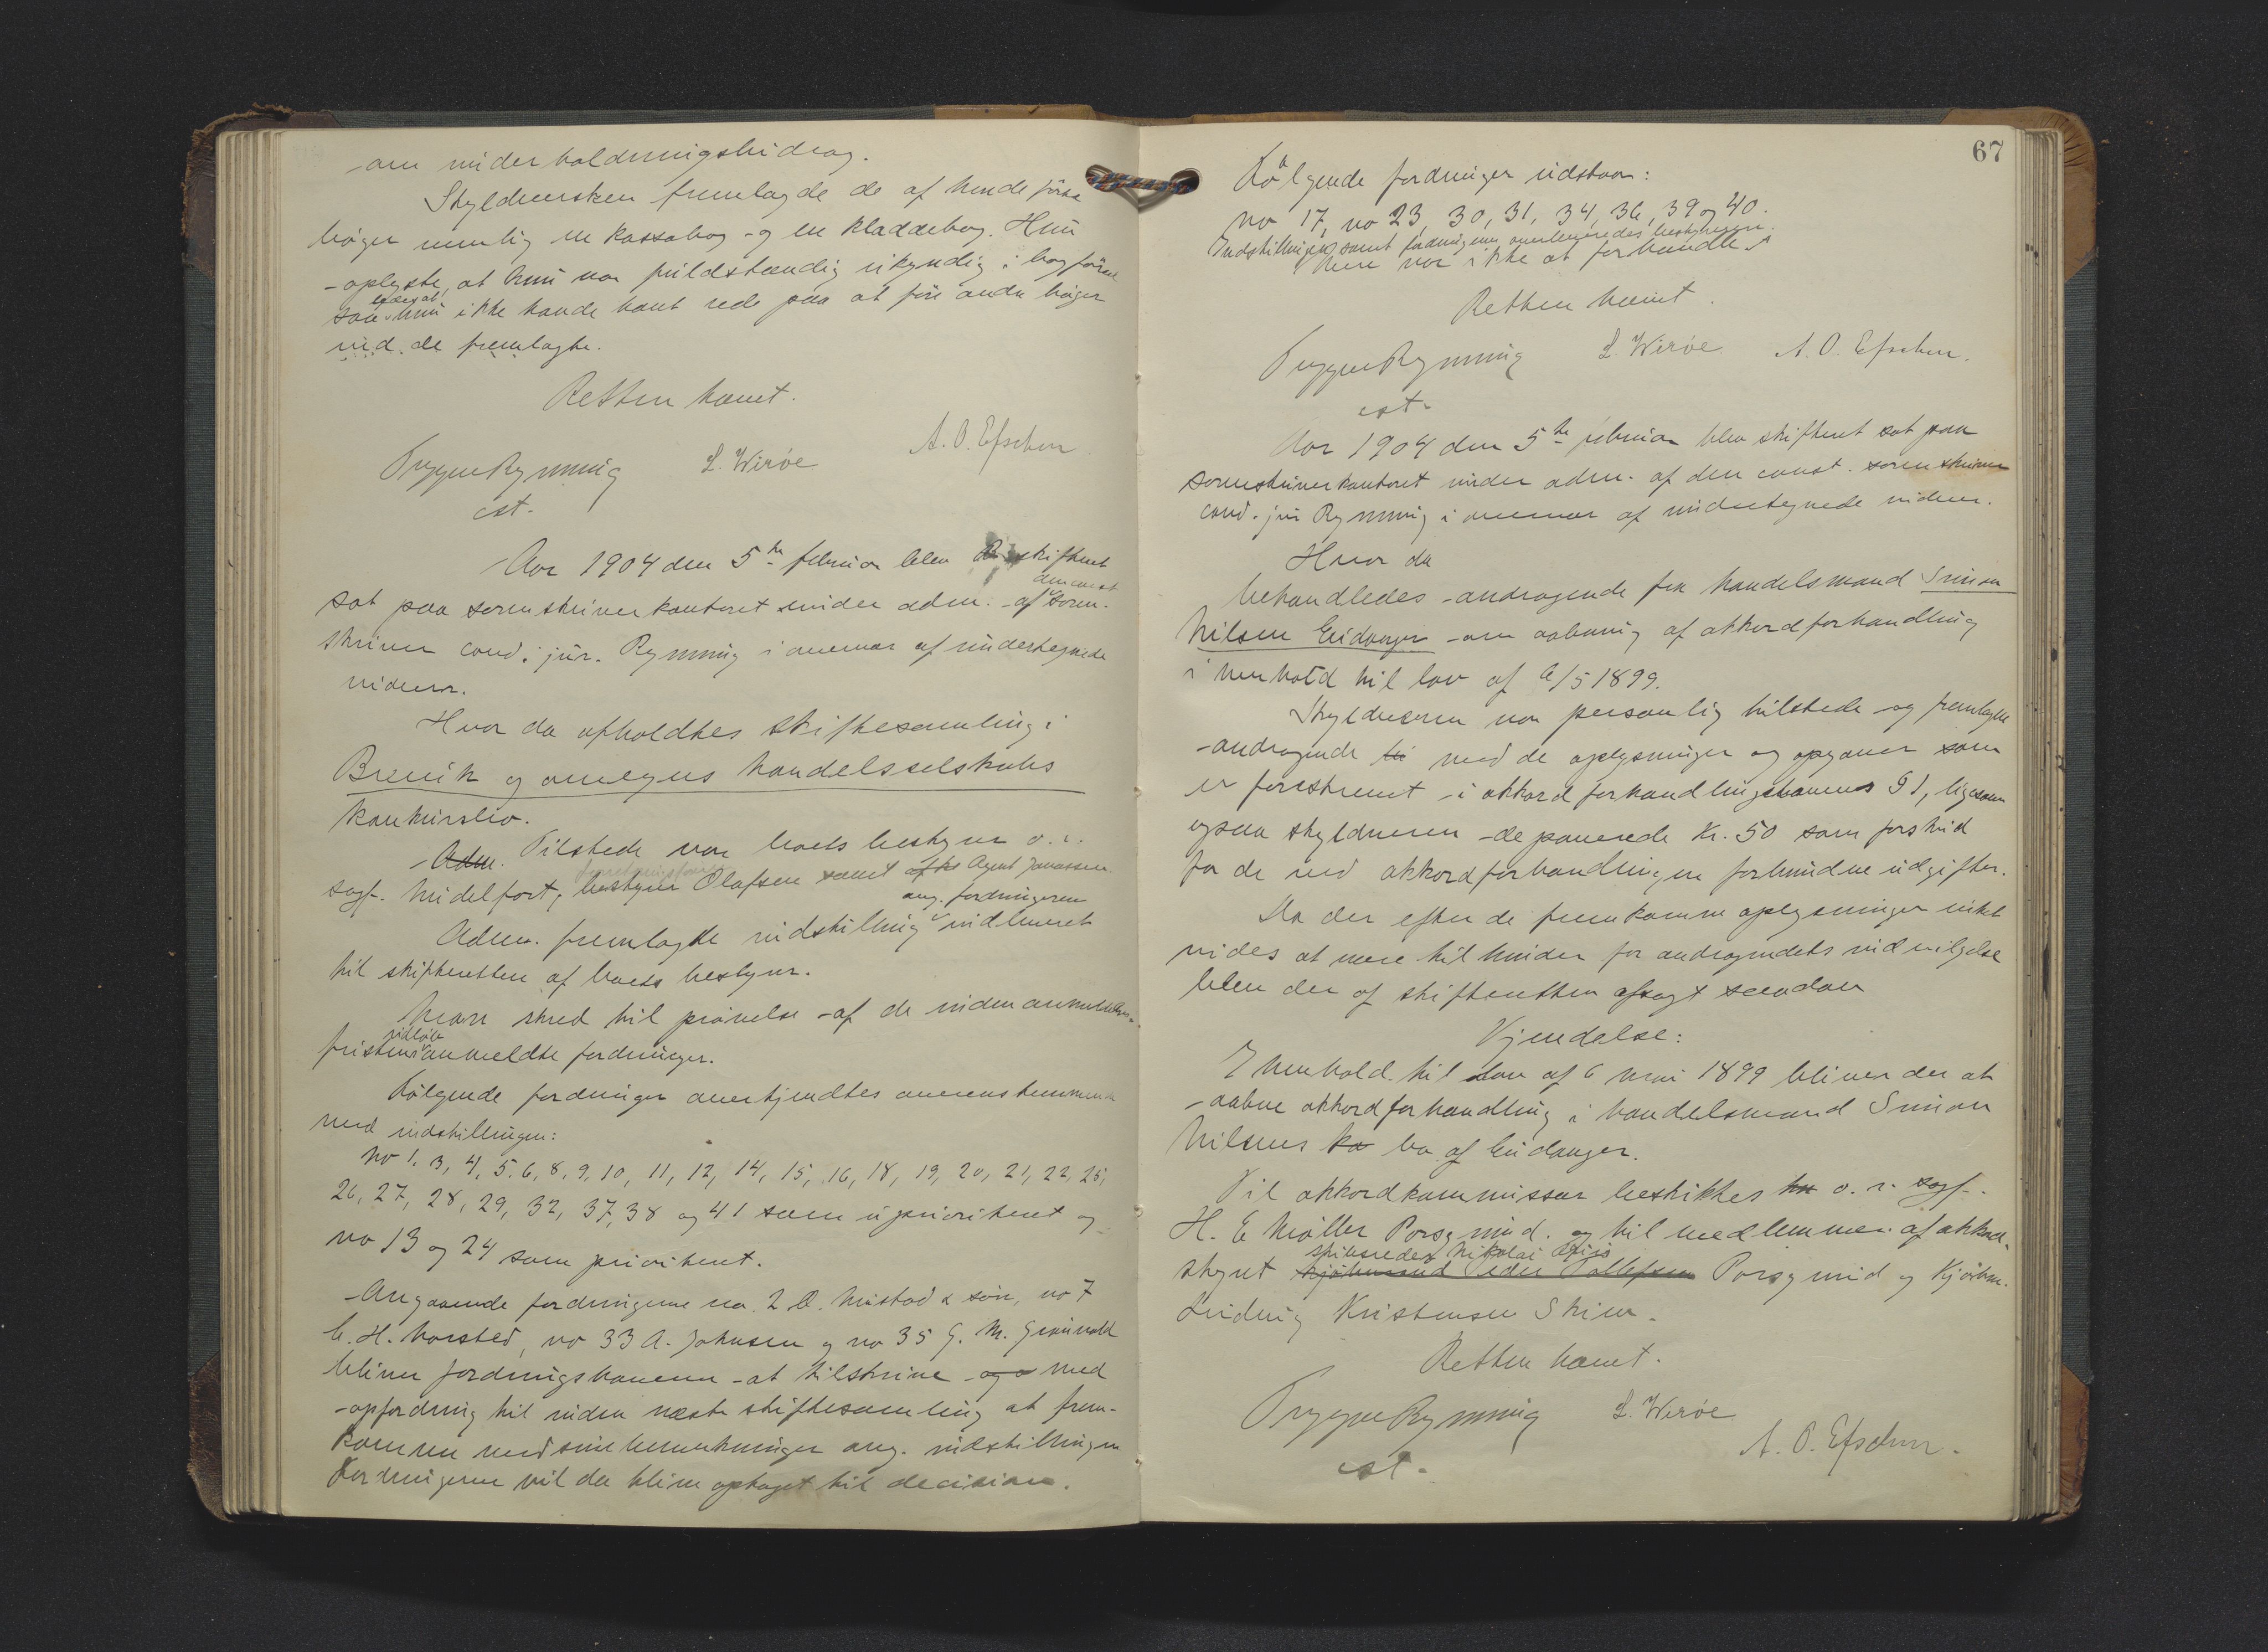 om underholdningsbidrag.
Skyldnersken fremlagde de af hende førte
bøger nemlig en kassabog og en kladdebog. Hun
oplyste, at hun var fuldstændig ukyndig i bogførsel
saa hun ikke havde havt rede paa at føre andre bøger
end de fremlagte.
Retten hævet.
Trygve Rymmig L. Wirøe A. O. Efschen
cst.
Aar 1904 den 5te februar blev skifteret
den const.
sat paa sorenskriverkontoret under adm. af soren-
skriver cand. jur. Rymmig i overvær af undertegnede
vidner.
Hvor da afholdtes skiftesamling i
Brevik og omegns handelsselskabs
konkursbo.
Adm. Tilstede var boets bestyrer o.r.
sagf. Midelfart, bestyrer Olafsen samt Agent Jonassen
ang. fordringerne
Adm. fremlagde indstilling indleveret
til skifteretten af boets bestyrer.
Man skred til prøvelse af de inden anmeldelses-
udløb
fristens anmeldte fordringer.
Følgende fordringer anerkjendtes overensstemmende
med indstillingen:
No 1, 3, 4, 5, 6, 8, 9, 10, 11, 12, 14, 15, 16, 18, 19, 20, 21, 22, 25,
26, 27, 28, 29, 32, 37, 38 og 41 som uprioriteret og
no 13 og 24 som prioriteret.
Angaaende fordringerne no. 2 O. Mustad & søn, no 7
C. H. Worsted, no 33 A. Johnsen og no 35 G. M. Grønvold
bliver fordringshaverne at tilskrive og med
opfordring til inden næste skiftesamling at frem-
komme med sine bemerkninger ang. indstillingen
Fordringerne vil da blive optaget til decision.
67
Følgende fordringer udstaar:
No 17, no 23, 30, 31, 34, 36, 39 og 40.
Indstillingen samt fordringerne overleveredes bestyreren.
Mere var ikke at forhandle
Retten hævet.
Trygve Rymmig L. Wirøe A. O. Efschen.
cst.
Aar 1904 den 5te februar blev skifteret sat paa
sorenskriverkontoret under adm. af den const. sorenskriver
cand. jur Rymmig i overvær af undertegnede vidner.
Hvor da
behandledes andragende fra handelsmand Simon
Nilsen Eidanger om aabning af akkordforhandling
i henhold til lov af 6/5 1899.
Skyldneren var personlig tilstede og fremlagde
andragende med de oplysninger og opgaver som
er foreskrevet i akkordforhandlingslovens § 1, ligesom
ogsaa skyldneren deponerede Kr. 50 som forskud
for de ved akkordforhandlingen forbundne udgifter.
Da der efter de fremkomne oplysninger intet
vides at være til hinder for andragendets indvilgelse
blev der af skifteretten afsagt saadan
Kjendelse:
I henhold til lov af 6 mai 1899 bliver der at
aabne akkordforhandling i handelsmand Simon
Nilsens bo af Eidanger.
Til akkordkommissær beskikkes o.r. sagf.
H. E Møller Porsgrund. og til medlemmer af akkord-
skibsreder Nikolai Friis
styret kjøbmand Peder Tollefsen Porsgrund og Kjøbm.
Ludvig Kristensen Skien.
Retten hævet.
Trygve Rymmig L. Wirøe
A. O. Efschen.
cst.